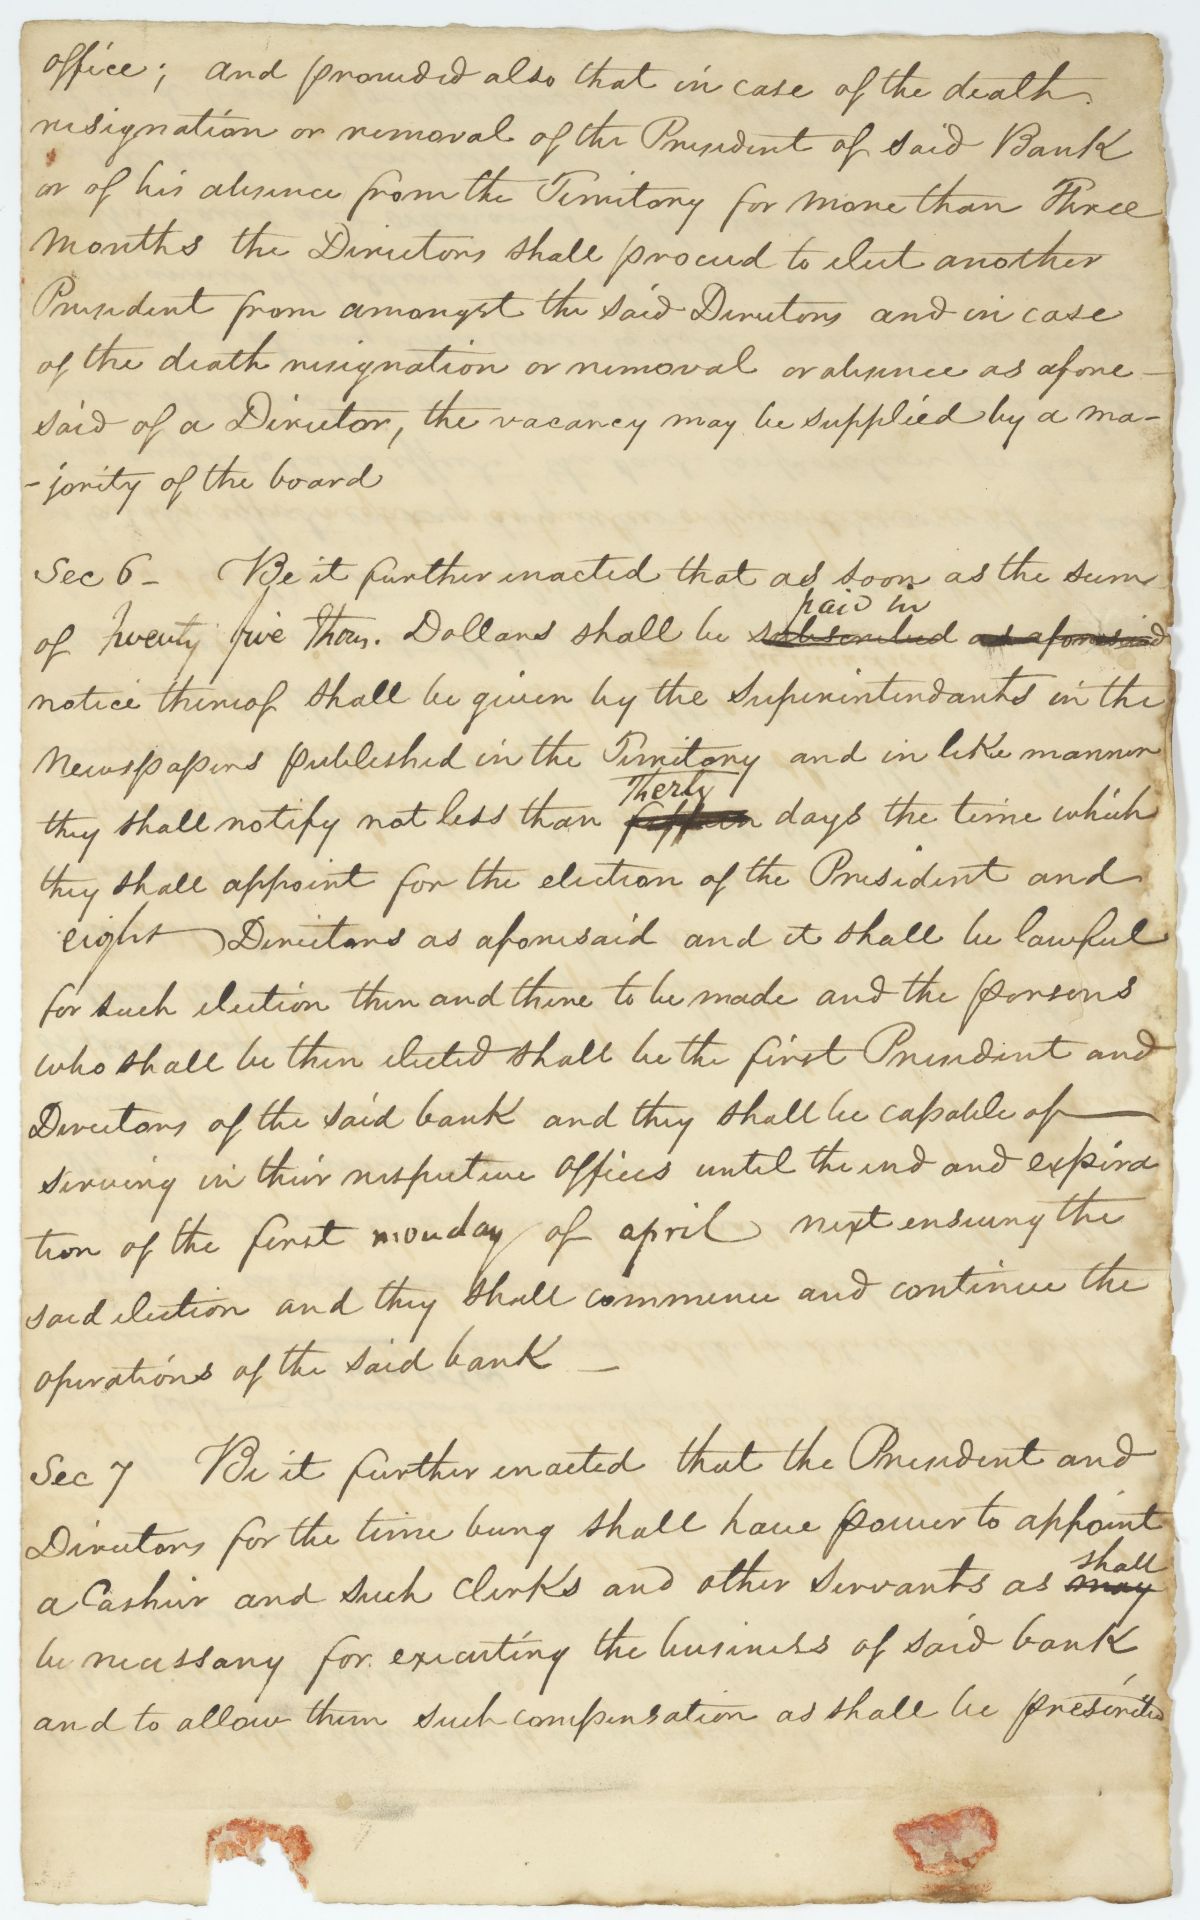 office; and provided also that in case of the death
resignation or removal of the President of said Bank
or of his absence from the Territory for more than Three
months the Directors shall proceed to elect another
President from amongst the said Directors and in case
of the death resignation or removal or absence as afore-
said of a Director, the vacancy may be supplied by a ma-
-jority of the board
Sec 6 - Be it further enacted that as soon as the sum
paid in
of twenty five thous. Dollars shall be subscribed as aforesaid
notice thereof shall be given by the superintendants in the
Newspapers published in the Territory and in like manner
Therty
they shall notify not less than fifteen days the time which
they shall appoint for the election of the President and
eight Directors as aforesaid and it shall be lawful
for such election then and there to be made and the persons
who shall be then elected shall be the first President and
Directors of the said bank and they shall be capable of
serving in their respective offices until the end and expira
tion of the first monday of april next ensuing the
said election and they shall commence and continue the
operations of the said bank -
Sec 7 Be it further enacted that the President and
Directors for the time being shall have power to appoint
shall
a Cashier and such Clerks and other servants as may
be necessary for executing the business of said bank
and to allow them such compensation as shall be